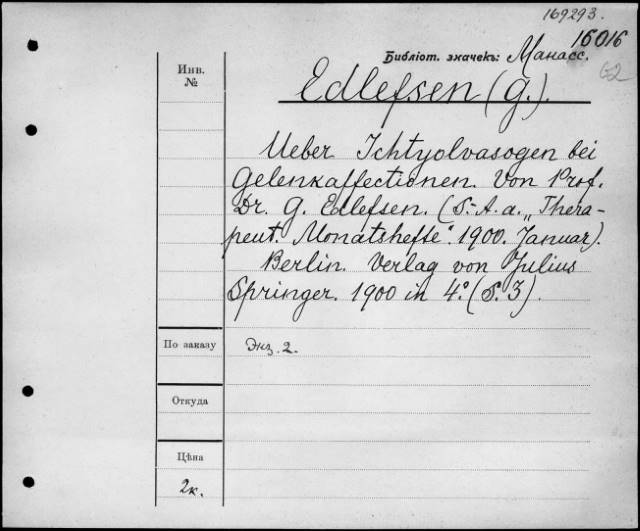 169293.
16016
Инв.
№
Библіот. значекъ: Манасс.
62
Edlefsen (G.).
Ueber Ichtyolvasogen bei
Gelenkaffectionen. Von Prof.
Dr. G. Edlefsen. (S.-A. a. „Thera-
peut. Monatshefte". 1900. Januar).
Berlin. Verlag von Julius
Springer. 1900 in 4°. (S. 3).
По заказу
Экз. 2.
Откуда
Цѣна
2к.